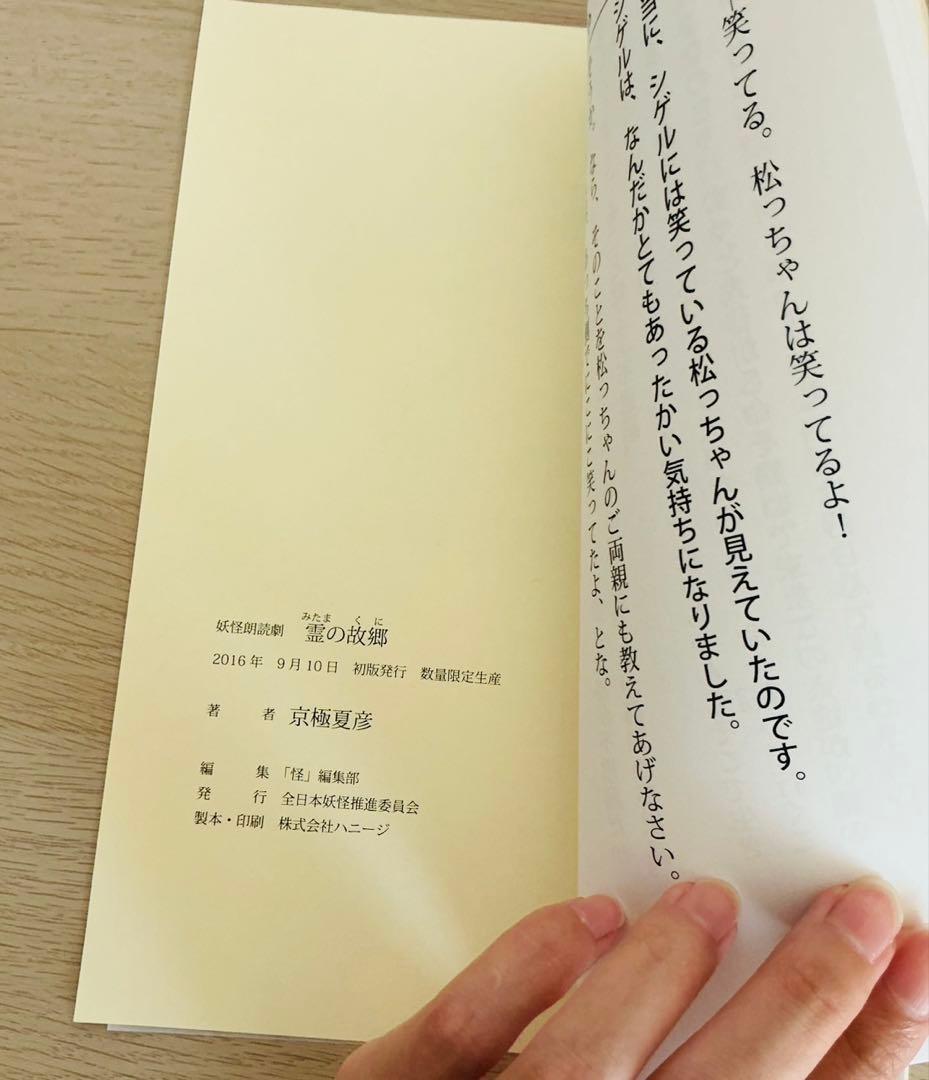 笑ってる。松っちゃんは笑ってるよ！
当に、シゲルには笑っている松っちゃんが見えていたのです。
シゲルは、なんだかとてもあったかい気持ちになりました。
なら、そのことを松っちゃんのご両親にも教えてあげなさい。
にこにこ笑ってたよ、とな。
妖怪朗読劇 霊の故郷
みたま くに
2016年 9月10日 初版発行 数量限定生産
著者 京極夏彦
編集 「怪」編集部
発行 全日本妖怪推進委員会
製本・印刷 株式会社ハニージ